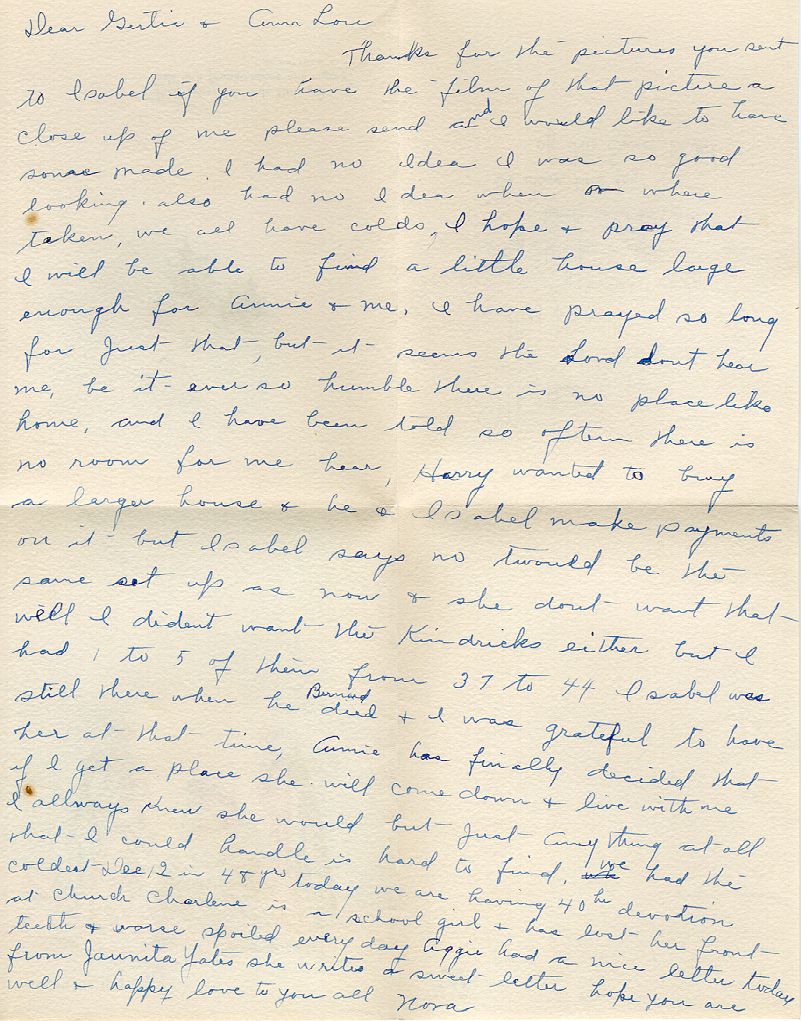 Dear Gertie & Anna Lou
Thanks for the pictures you sent
to Isabel if you have the film of that picture a
close up of me please send and I would like to have
some made. I had no idea I was so good
looking. also had no Idea when or where
taken, we all have colds, I hope & pray that
I will be able to find a little house large
enough for Annie & me, I have prayed so long
for Just that, but it seems the Lord dont hear
me, be it ever so humble there is no place like
home, and I have been told so oftern there is
no room for me hear, Harry wanted to buy
a larger house & he & Isabel make payments
on it but Isabel says no twould be the
same set up as now & she dont want that
well I dident want the Kindricks either but I
had 1 to 5 of them from 37 to 44 Isabel was
still there when he Bernard died & I was grateful to have
her at that time, Annie has finally decided that
if I get a place she will come down & live with me
I allways knew she would but Just any thing at all
that I could handle is hard to find. we had the
coldest Dec 12 in 48 yrs today we are having 40 hr devotion
at church Charlene is a school girl & has lost her front
teeth & worse spoiled every day Aggie had a nice letter today
from Jaunita Yates she writes a sweet letter hope you are
well & happy love to you all Nora